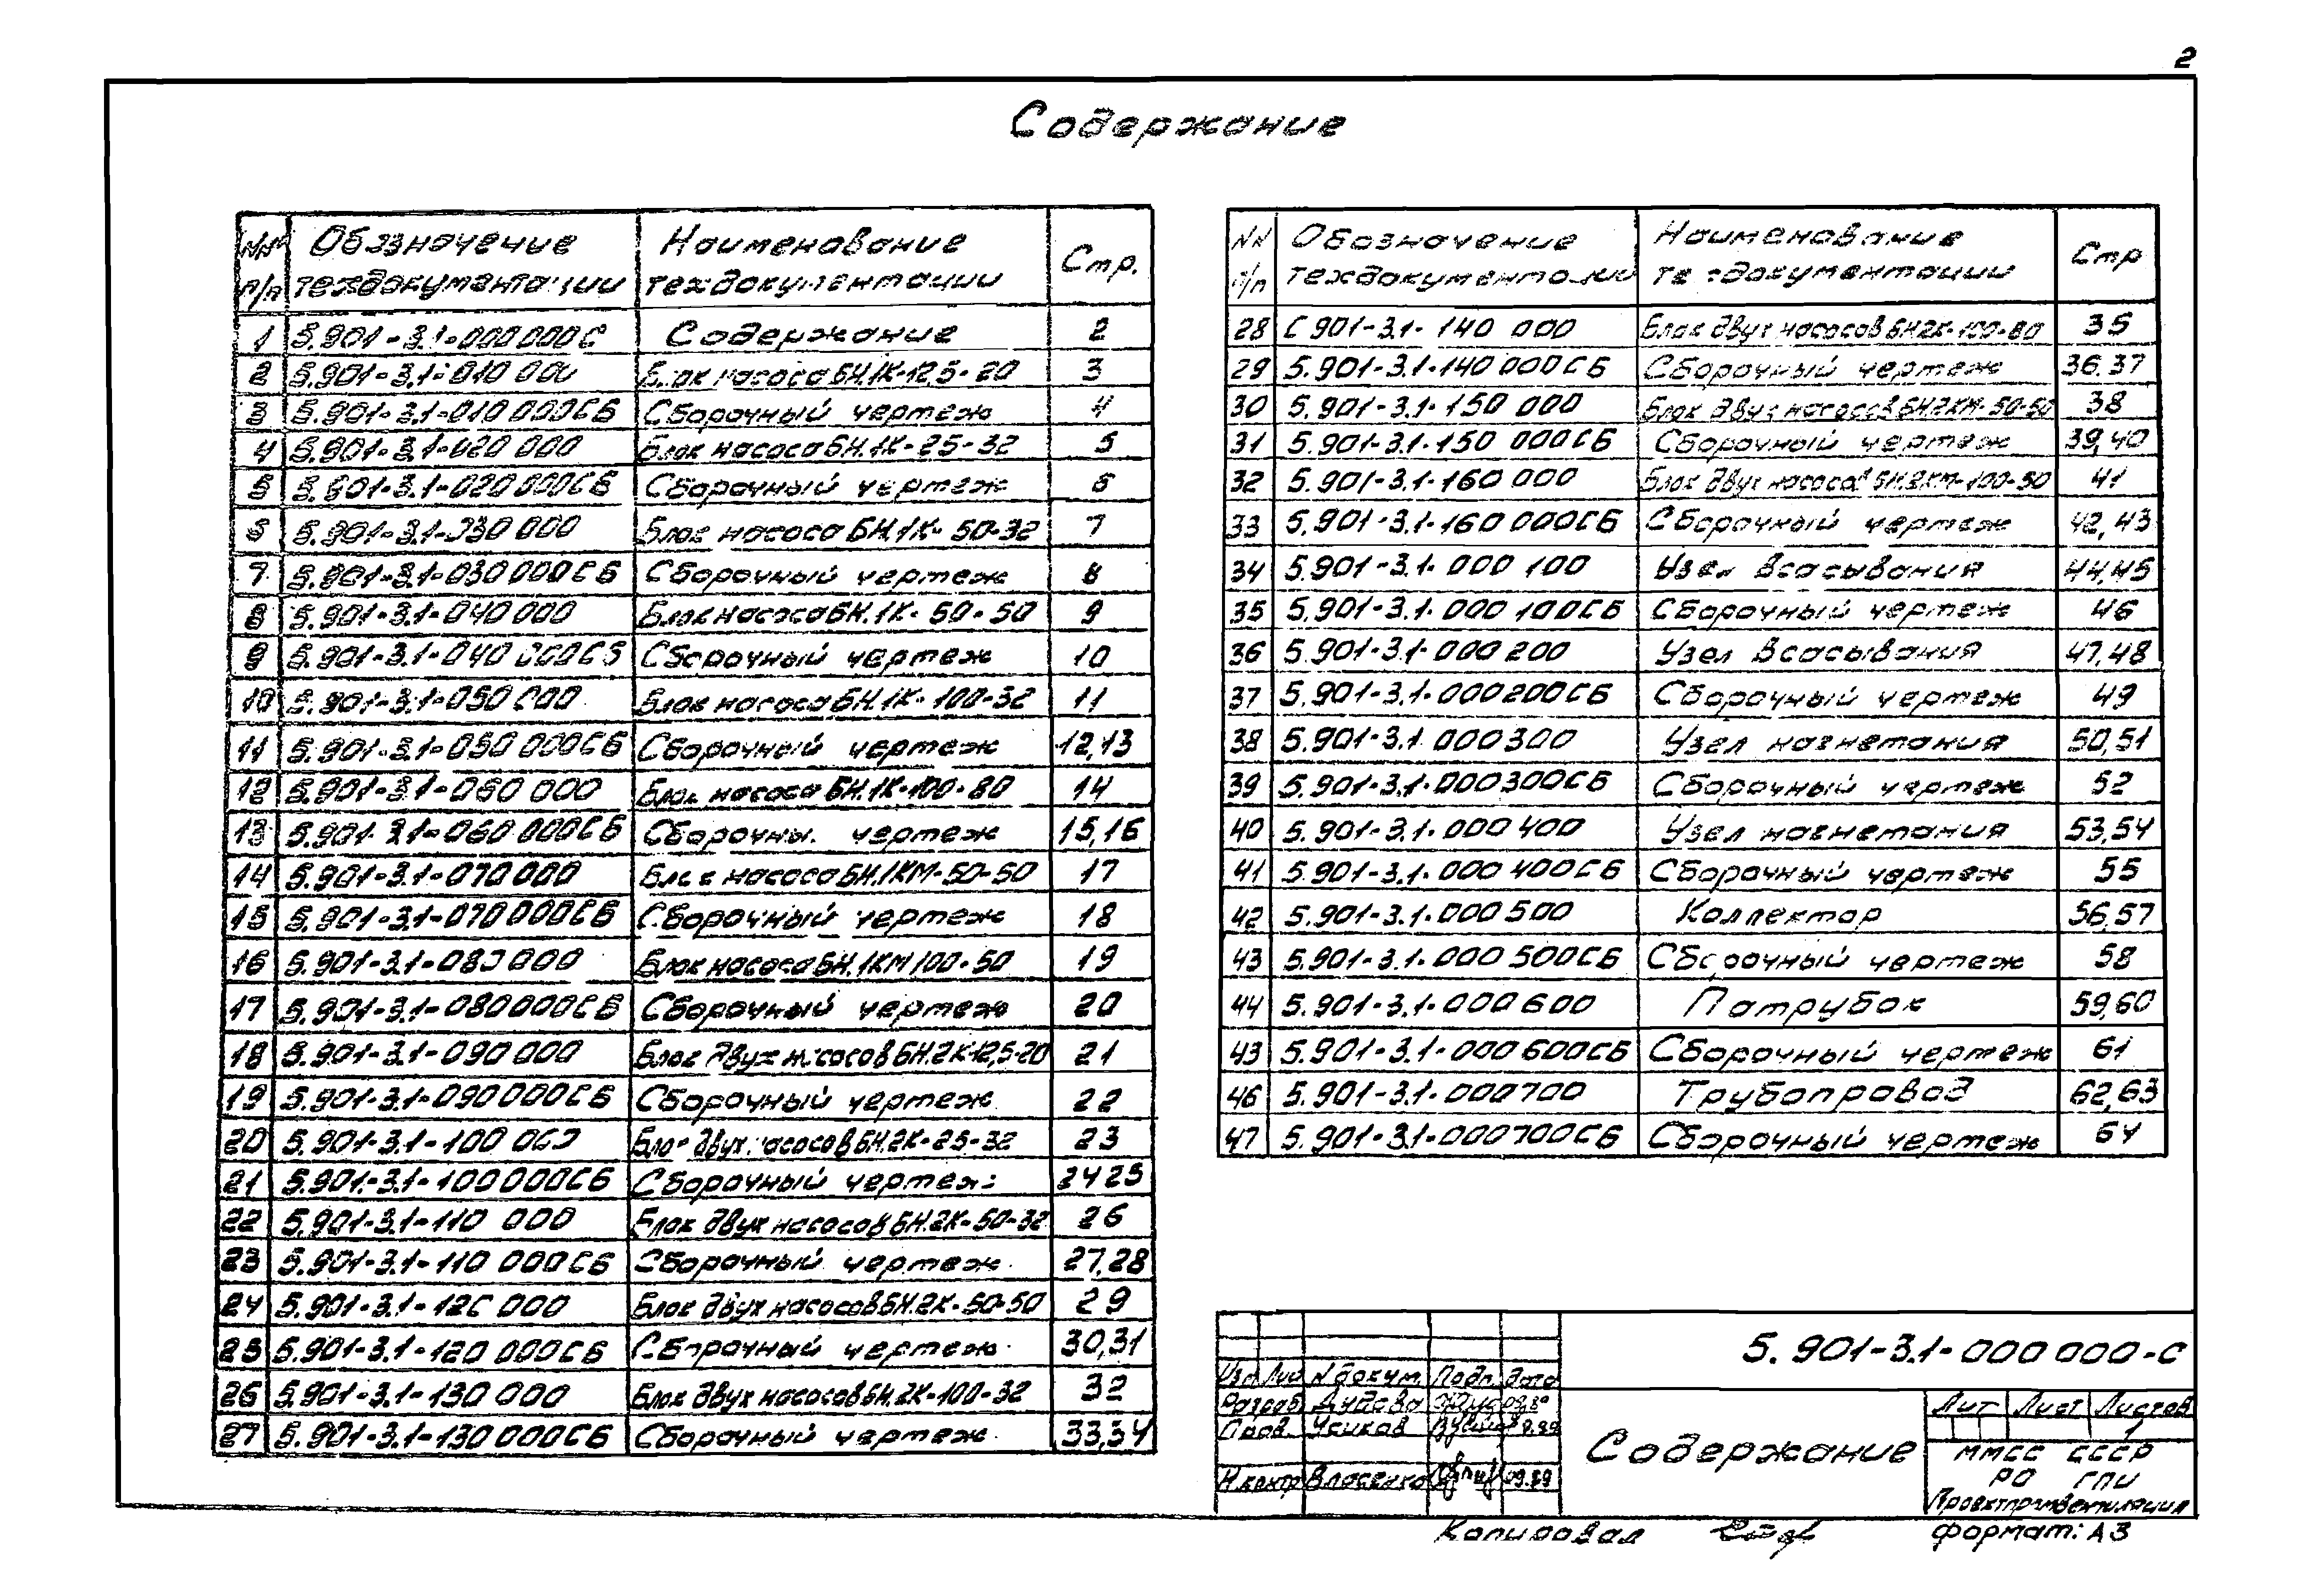 2
Содержание
NN п/п Обозначение техдокументации Наименование техдокументации Стр.
1 5.901-3.1-000000С Содержание 2
2 5.901-3.1-010 000 Блок насоса БН.1К-12,5-20 3
3 5.901-3.1-010 000СБ Сборочный чертеж 4
4 5.901-3.1-020 000 Блок насоса БН.1К-25-32 5
5 5.901-3.1-020 000СБ Сборочный чертеж 6
6 5.901-3.1-030 000 Блок насоса БН.1К-50-32 7
7 5.901-3.1-030 000СБ Сборочный чертеж 8
8 5.901-3.1-040 000 Блок насоса БН.1К-50-50 9
9 5.901-3.1-040 000СБ Сборочный чертеж 10
10 5.901-3.1-050 000 Блок насоса БН.1К-100-32 11
11 5.901-3.1-050 000СБ Сборочный чертеж 12,13
12 5.901-3.1-060 000 Блок насоса БН.1К-100-80 14
13 5.901-3.1-060 000СБ Сборочный чертеж 15,16
14 5.901-3.1-070 000 Блок насоса БН.1КМ-50-50 17
15 5.901-3.1-070 000СБ Сборочный чертеж 18
16 5.901-3.1-080 000 Блок насоса БН.1КМ 100-50 19
17 5.901-3.1-080000СБ Сборочный чертеж 20
18 5.901-3.1-090 000 Блок двух насосов БН.2К-12,5-20 21
19 5.901-3.1-090 000СБ Сборочный чертеж 22
20 5.901-3.1-100 000 Блок двух насосов БН.2К-25-32 23
21 5.901-3.1-100 000СБ Сборочный чертеж 24 25
22 5.901-3.1-110 000 Блок двух насосов БН.2К-50-32 26
23 5.901-3.1-110 000СБ Сборочный чертеж 27,28
24 5.901-3.1-120 000 Блок двух насосов БН.2К-50-50 29
25 5.901-3.1-120 000СБ Сборочный чертеж 30,31
26 5.901-3.1-130 000 Блок двух насосов БН.2К-100-32 32
27 5.901-3.1-130 000СБ Сборочный чертеж 33,34
NN п/п Обозначение техдокументации Наименование техдокументации Стр
28 С 901-3.1-140 000 Блок двух насосов БН.2К-100-80 35
29 5.901-3.1-140 000СБ Сборочный чертеж 36,37
30 5.901-3.1-150 000 Блок двух насосов БН.2КМ-50-50 38
31 5.901-3.1-150 000СБ Сборочный чертеж 39,40
32 5.901-3.1-160 000 Блок двух насосов БН.2КМ-100-50 41
33 5.901-3.1-160 000СБ Сборочный чертеж 42,43
34 5.901-3.1-000 100 Узел всасывания 44,45
35 5.901-3.1-000 100СБ Сборочный чертеж 46
36 5.901-3.1-000 200 Узел всасывания 47,48
37 5.901-3.1-000200СБ Сборочный чертеж 49
38 5.901-3.1 000300 Узел нагнетания 50,51
39 5.901-3.1-000300СБ Сборочный чертеж 52
40 5.901-3.1-000 400 Узел нагнетания 53,54
41 5.901-3.1-000 400СБ Сборочный чертеж 55
42 5.901-3.1-000 500 Коллектор 56,57
43 5.901-3.1-000 500СБ Сборочный чертеж 58
44 5.901-3.1-000 600 Патрубок 59,60
43 5.901-3.1-000 600СБ Сборочный чертеж 61
46 5.901-3.1-000700 Трубопровод 62,63
47 5.901-3.1-000700СБ Сборочный чертеж 64
5.901-3.1-000 000-С
Изм Лис N докум. Подп. Дата
Разраб Дудова
Пров. Усиков 9.89
Н.контр Власенко 09.89
Содержание
Лит Лист Листов
1
ММСС СССР
РО ГПИ
Проектпромвентиляция
Копировал формат: А3